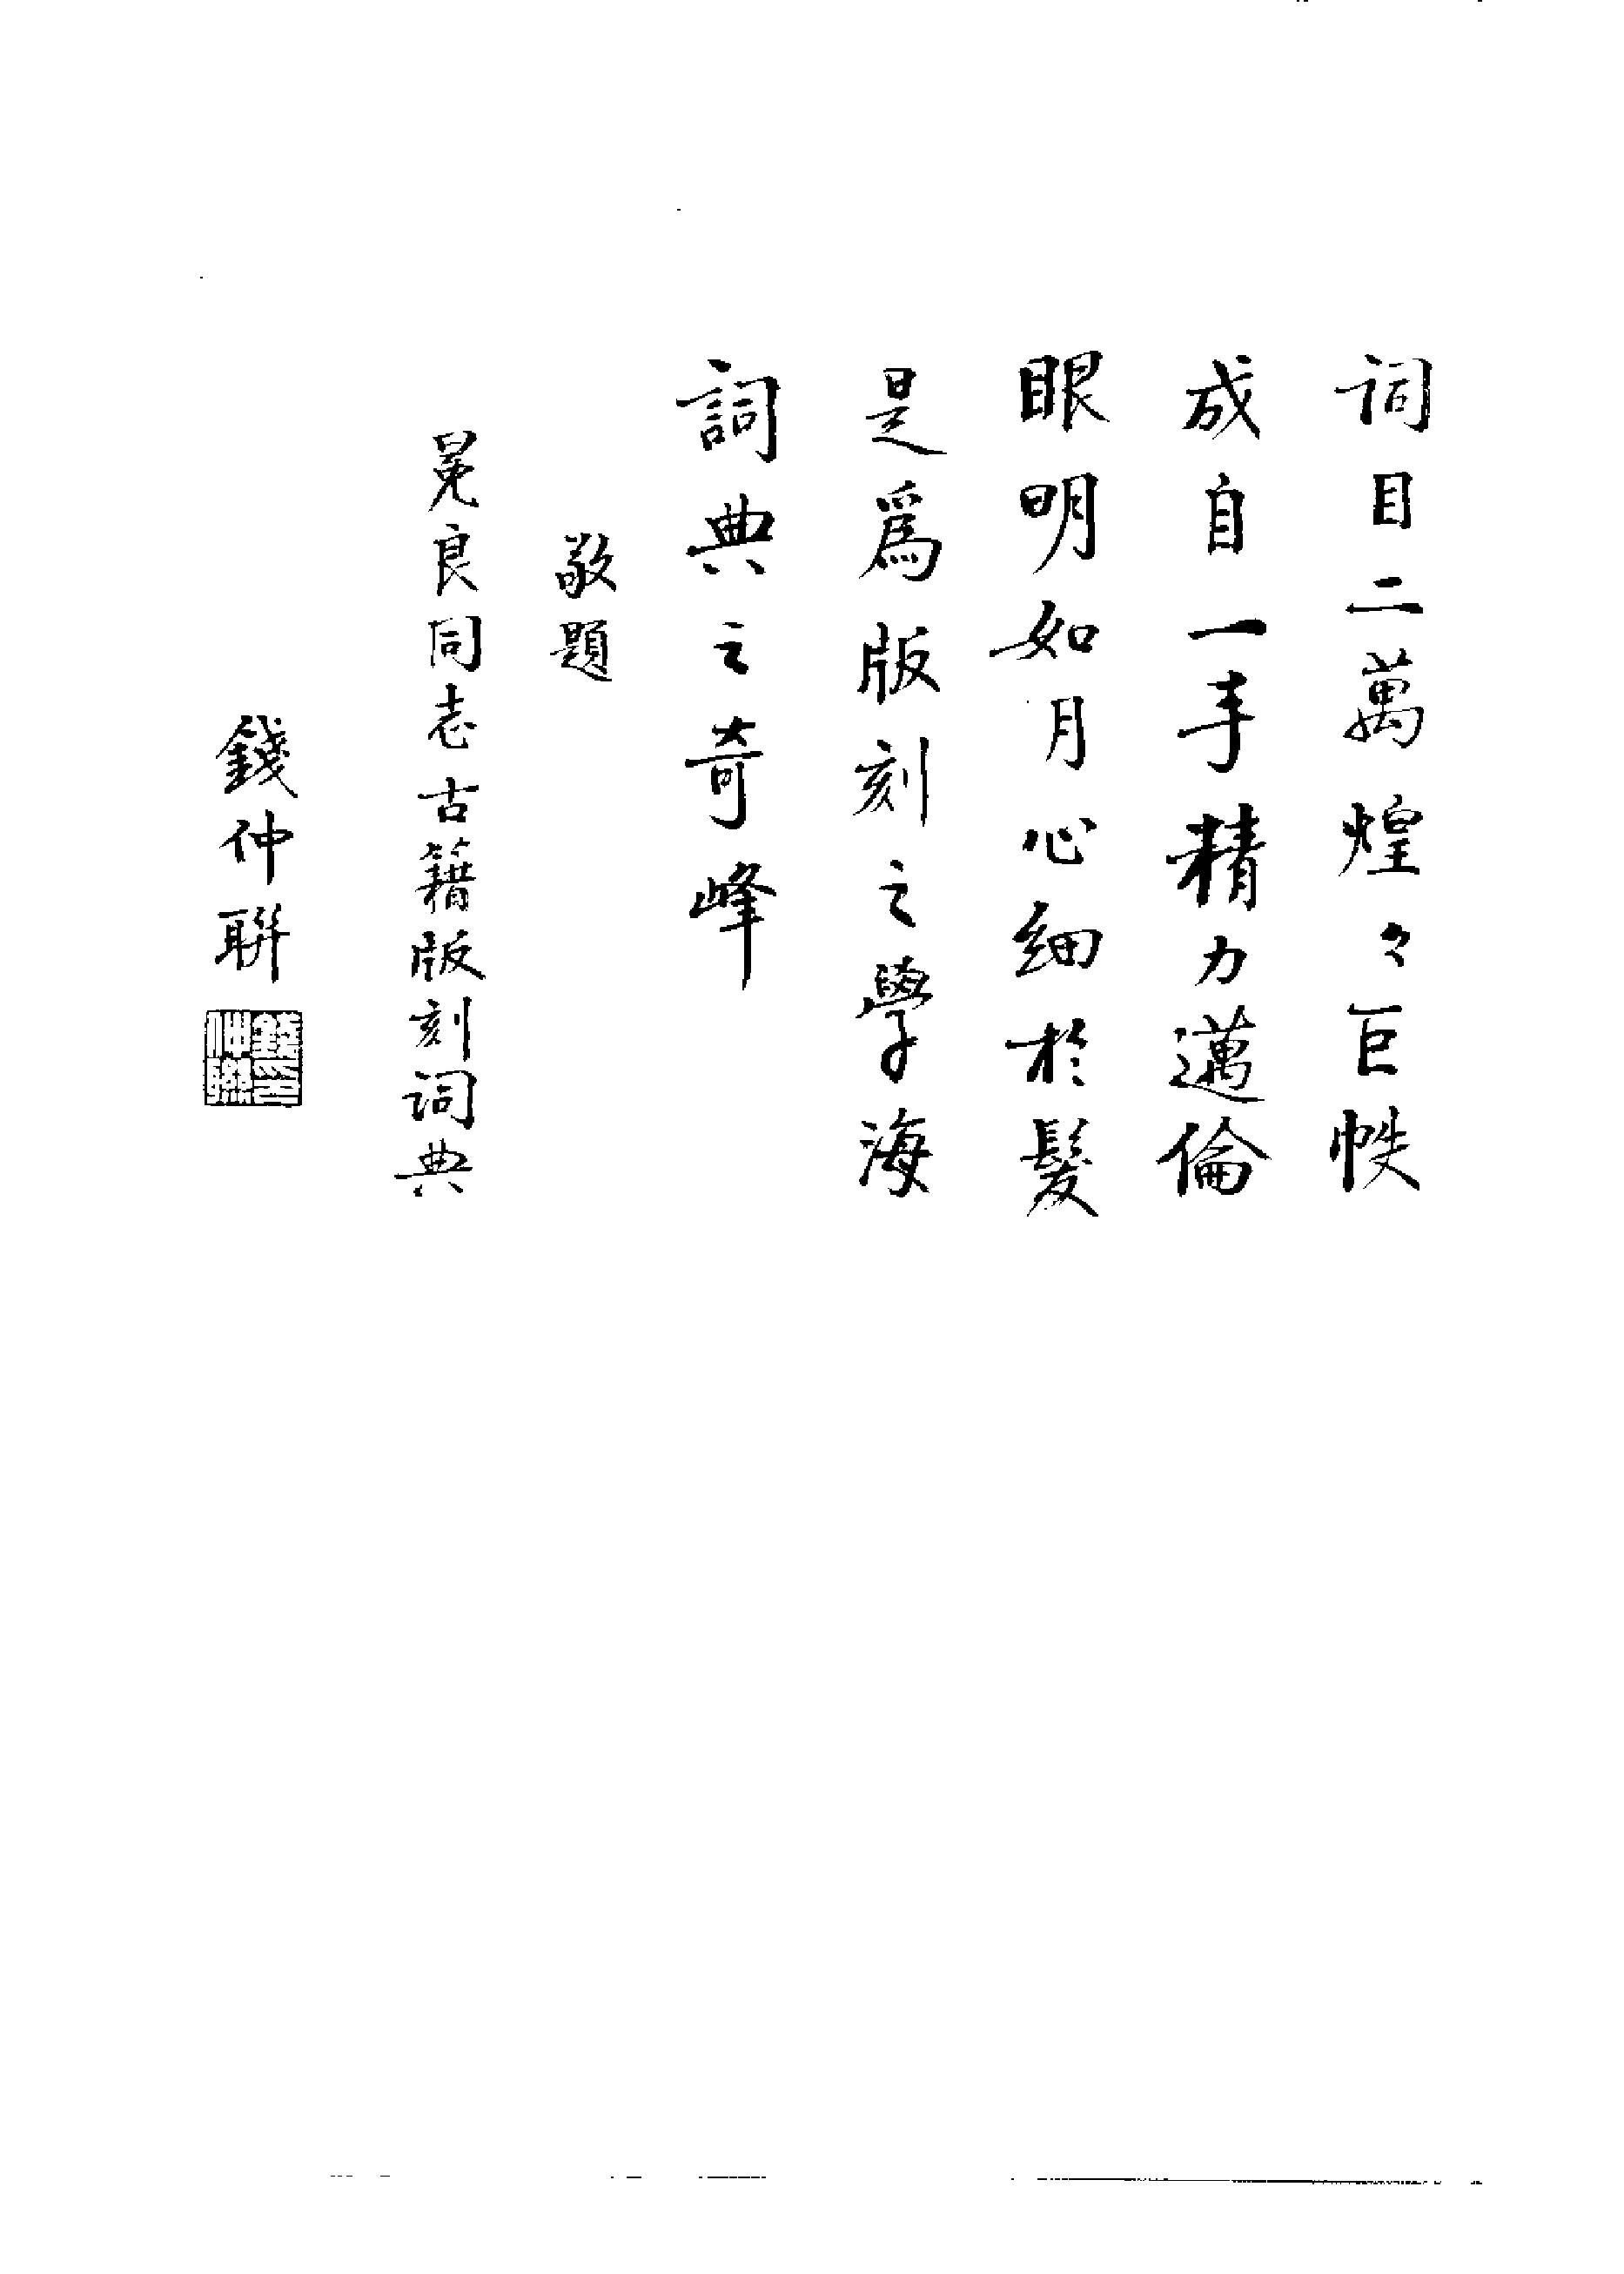 詞目二萬煌々巨帙
成自一手精力邁倫
眼明如月心細於髮
是爲版刻之學海
詞典之奇峰
敬題
冕良同志古籍版刻詞典
錢仲聯
錢仲聯印